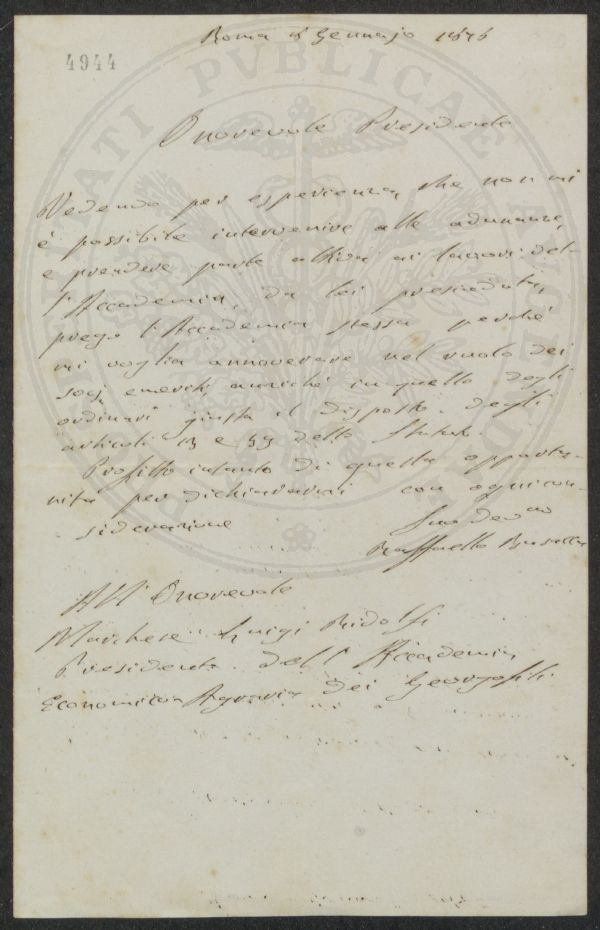 Roma 8 Gennajo 1876
4944
Onorevole Presidente
Vedendo per esperienza, che non mi
è possibile intervenire alle adunanze,
e prendere parte attiva ai lavori del-
l'Accademia, da lei presieduta,
prego l'Accademia stessa perché
mi voglia annoverare nel ruolo dei
socj emeriti, anziché in quello degli
ordinari giusta il disposto degli
articoli 13 e 53 dello Statuto.
Profitto intanto di questa opportu-
nità per dichiararmi con ogni con-
siderazione
Suo dev.mo
Raffaello Busacca
All'Onorevole
Marchese Luigi Ridolfi
Presidente dell'Accademia
Economico Agraria dei Georgofili